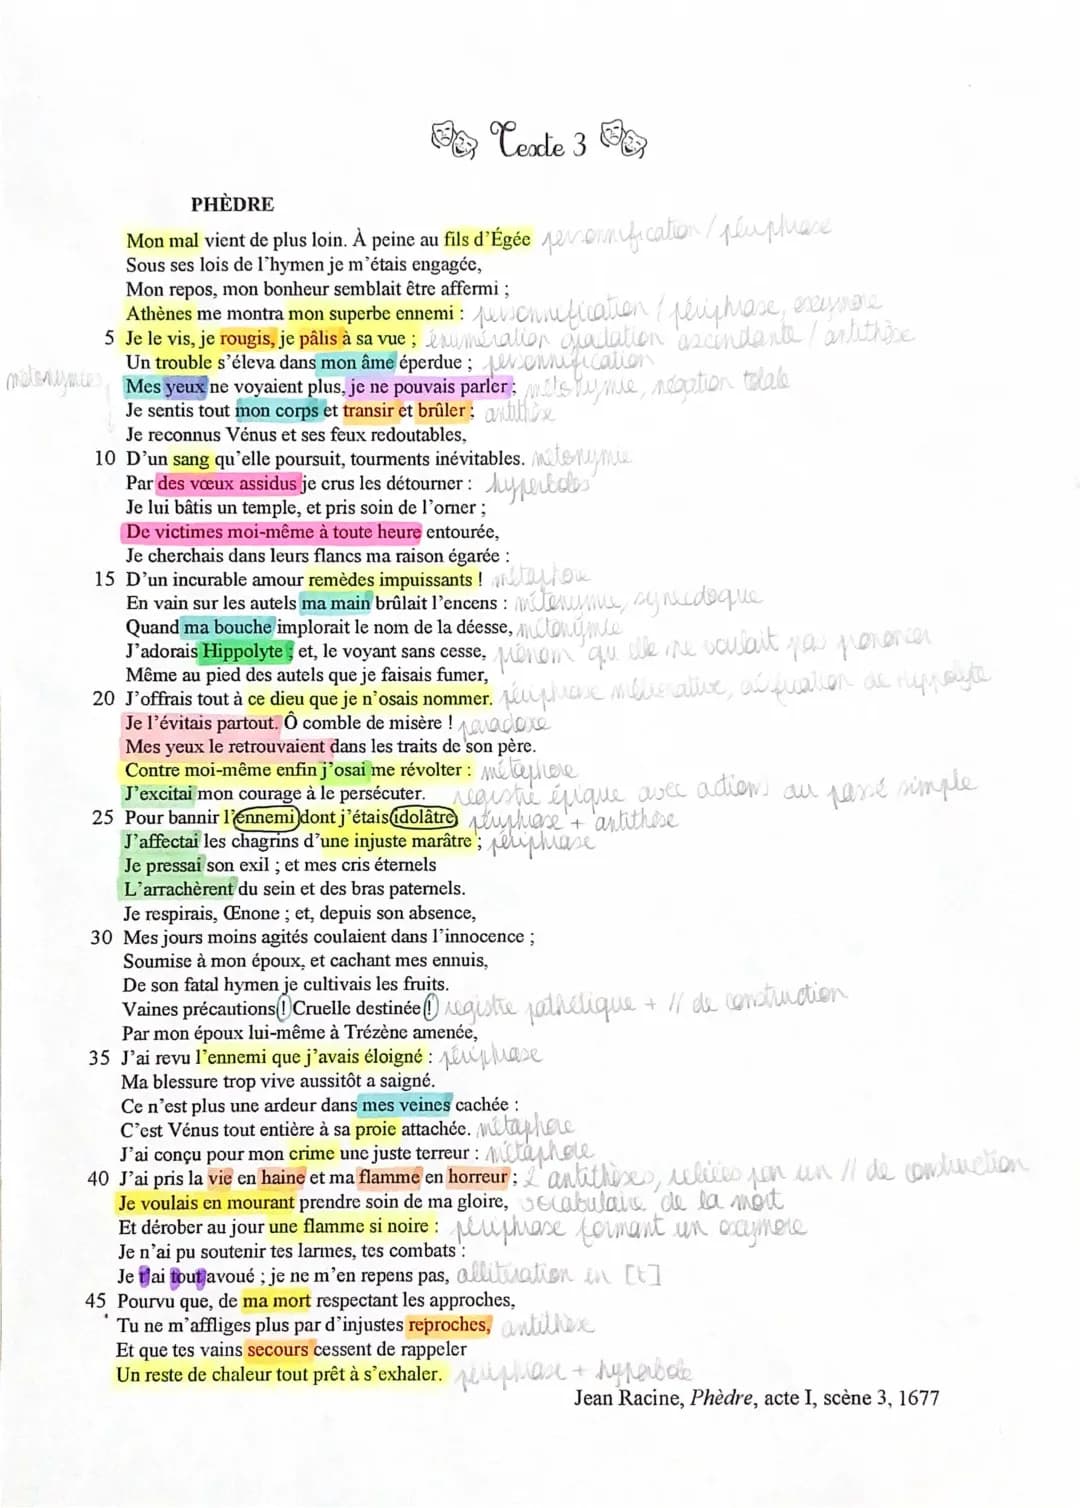 Texte 3
PHÈDRE
Mon mal vient de plus loin. À peine au fils d'Égée personnification / périphrase
Sous ses lois de l'hymen je m'étais engagée,
Mon repos, mon bonheur semblait être affermi ;
Athènes me montra mon superbe ennemi : personnification / périphrase, oxymore
5 Je le vis, je rougis, je pâlis à sa vue ; énumération gradation ascendante / antithèse
Un trouble s'éleva dans mon âme éperdue ; personnification
métonymies Mes yeux ne voyaient plus, je ne pouvais parler ; métonymie, négation totale
Je sentis tout mon corps et transir et brûler ; antithèse
Je reconnus Vénus et ses feux redoutables,
10 D'un sang qu'elle poursuit, tourments inévitables. métonymie
Par des vœux assidus je crus les détourner : hyperboles
Je lui bâtis un temple, et pris soin de l'orner ;
De victimes moi-même à toute heure entourée,
Je cherchais dans leurs flancs ma raison égarée :
15 D'un incurable amour remèdes impuissants ! métaphore
En vain sur les autels ma main brûlait l'encens : métonymie, synecdoque
Quand ma bouche implorait le nom de la déesse, métonymie
J'adorais Hippolyte ; et, le voyant sans cesse, prénom qu'elle ne voulait pas prononcer
Même au pied des autels que je faisais fumer,
20 J'offrais tout à ce dieu que je n'osais nommer. périphrase méliorative, déification de Hippolyte
Je l'évitais partout. Ô comble de misère ! paradoxe
Mes yeux le retrouvaient dans les traits de son père.
Contre moi-même enfin j'osai me révolter : métaphore
J'excitai mon courage à le persécuter. registre épique avec actions au passé simple
25 Pour bannir l'ennemi dont j'étais idolâtre, périphrase + antithèse
J'affectai les chagrins d'une injuste marâtre ; périphrase
Je pressai son exil ; et mes cris éternels
L'arrachèrent du sein et des bras paternels.
Je respirais, Œnone ; et, depuis son absence,
30 Mes jours moins agités coulaient dans l'innocence ;
Soumise à mon époux, et cachant mes ennuis,
De son fatal hymen je cultivais les fruits.
Vaines précautions ! Cruelle destinée ! registre pathétique + // de construction
Par mon époux lui-même à Trézène amenée,
35 J'ai revu l'ennemi que j'avais éloigné : périphrase
Ma blessure trop vive aussitôt a saigné.
Ce n'est plus une ardeur dans mes veines cachée :
C'est Vénus tout entière à sa proie attachée. métaphore
J'ai conçu pour mon crime une juste terreur : métaphore
40 J'ai pris la vie en haine et ma flamme en horreur ; 2 antithèses, reliées par un // de construction
Je voulais en mourant prendre soin de ma gloire, vocabulaire de la mort
Et dérober au jour une flamme si noire : périphrase formant un oxymore
Je n'ai pu soutenir tes larmes, tes combats :
Je t'ai tout avoué ; je ne m'en repens pas, allitération en [t]
45 Pourvu que, de ma mort respectant les approches,
Tu ne m'affliges plus par d'injustes reproches, antithèse
Et que tes vains secours cessent de rappeler
Un reste de chaleur tout prêt à s'exhaler. périphrase + hyperbole
Jean Racine, Phèdre, acte I, scène 3, 1677